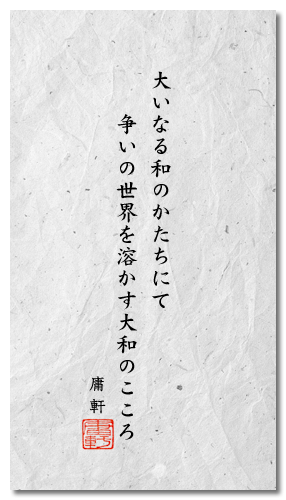 大いなる和のかたちにて
争いの世界を溶かす大和のこころ
庸軒